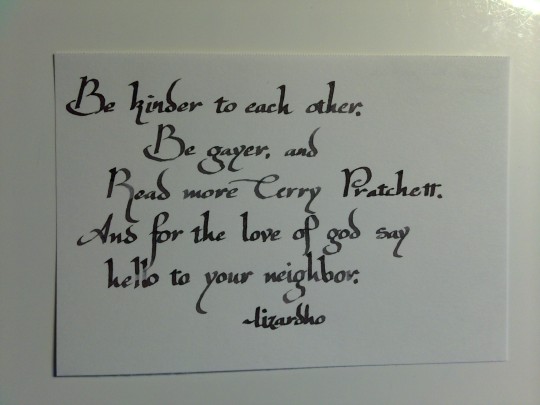 Be kinder to each other.
Be gayer. and
Read more Terry Pratchett.
And for the love of god say
hello to your neighbor.
~lizardho